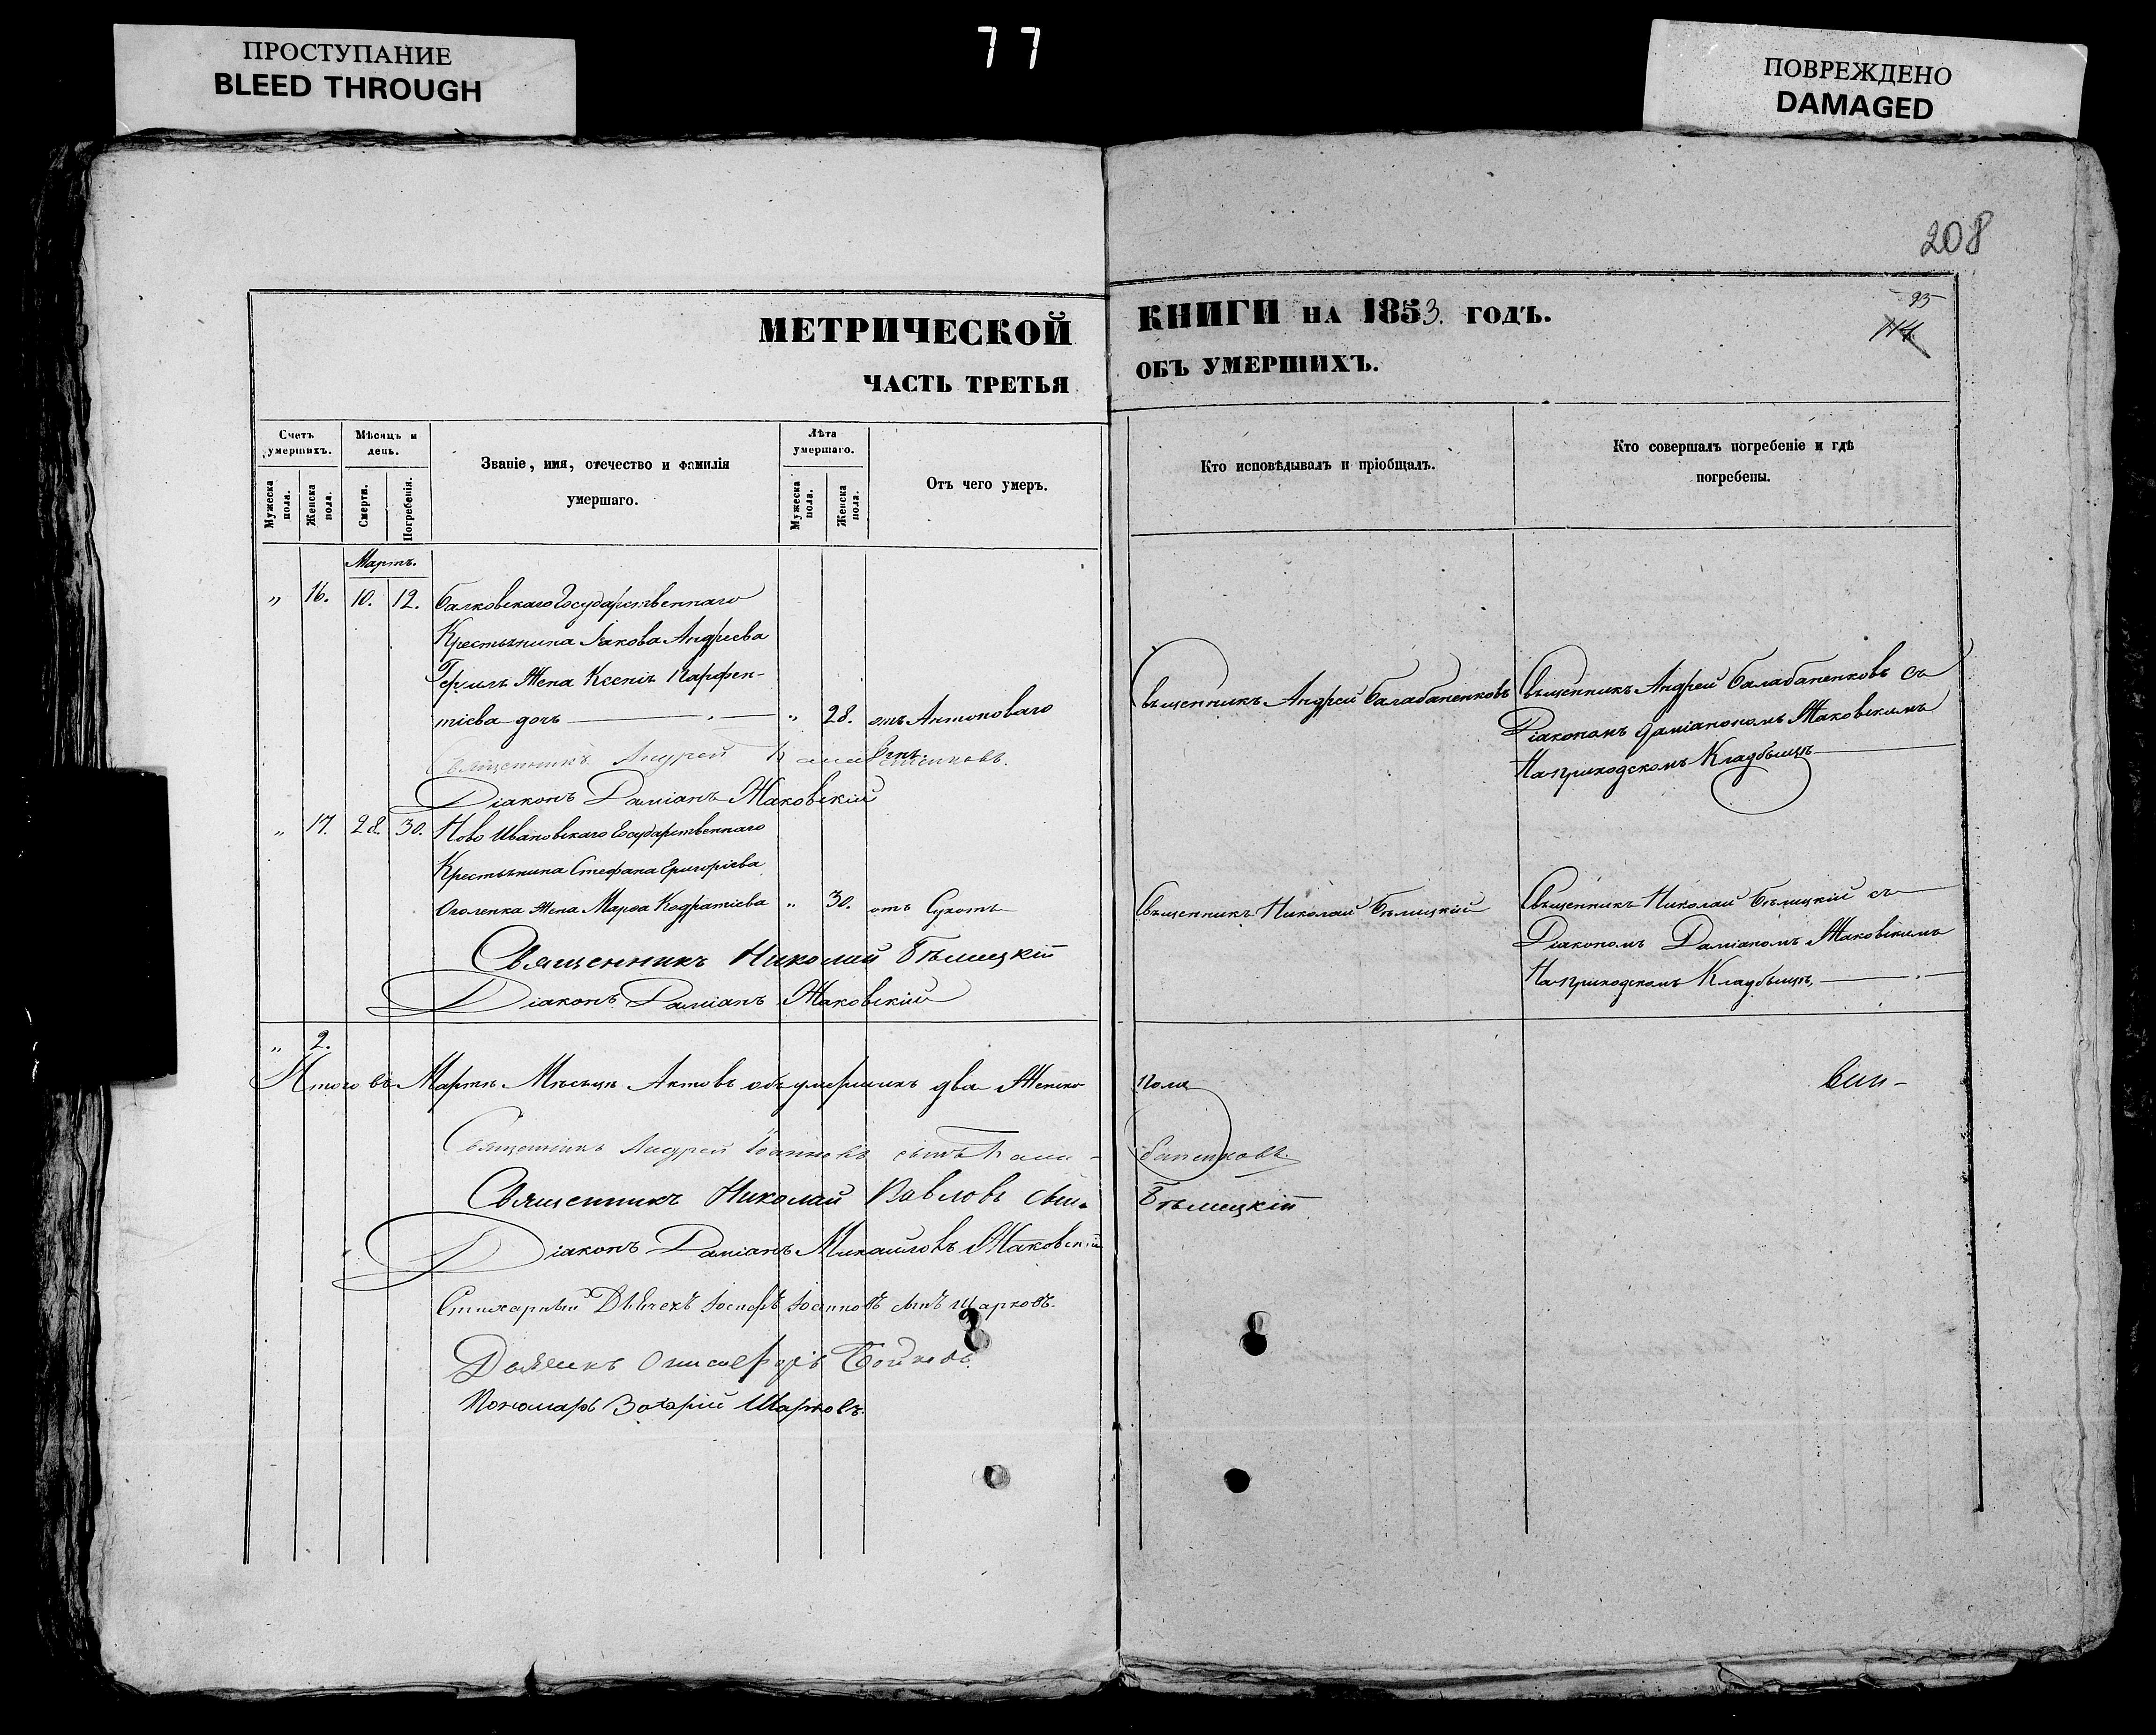 ПРОСТУПАНИЕ
BLEED THROUGH
77
ПОВРЕЖДЕНО
DAMAGED
208
МЕТРИЧЕСКОЙ КНИГИ НА 1853. ГОДЪ.
95
114.
ЧАСТЬ ТРЕТЬЯ ОБЪ УМЕРШИХЪ.
Счетъ умершихъ.
Мѣсяцъ и день.
Званіе, имя, отечество и фамилія умершаго.
Лѣта умершаго.
Отъ чего умеръ.
Кто исповѣдывалъ и пріобщалъ.
Кто совершалъ погребеніе и гдѣ погребены.
Мужеска пола.
Женска пола.
Смерти.
Погребенія.
Мужеска пола.
Женска пола.
Мартъ.
„ 16. 10. 12. Балковскаго Государственнаго
Крестьянина Іакова Андреева
Жена Ксенія Парфен-
тіева дочь „ 28. отъ Антоноваго
Огня.
Священникъ Андрей Балабаненковъ
Священникъ Андрей Балабаненковъ съ
Діакономъ Даміаномъ Маковскимъ
На приходскомъ Кладбищѣ
Священникъ Андрей Балабаненковъ.
Діаконъ Даміанъ Маковскій
„ 17. 28. 30. Ново Ивановскаго Государственнаго
Крестьянина Стефана Григоріева
Оголенка Жена Марѳа Кодратіева „ 30. отъ Сухоть
Священникъ Николай Бѣлицкій
Священникъ Николай Бѣлицкій съ
Діакономъ Даміаномъ Маковскимъ
На приходскомъ Кладбищѣ,
Священникъ Николай Бѣлицкій
Діаконъ Даміанъ Маковскій
„ 2.
Итого въ Мартѣ Мѣсяцѣ Актовъ объ умершихъ два Женско пола
Священникъ Андрей Іоанновъ сынъ Бала- баненковъ.
Священникъ Николай Павловъ сынъ Бѣлицкій
Діаконъ Даміанъ Михайловъ Маковскій
Стихарный Дьячекъ Іосифъ Іоанновъ сынъ Шарковъ.
Дьячекъ Онисифоръ Бойковъ.
Пономарь Захарій Шарковъ.